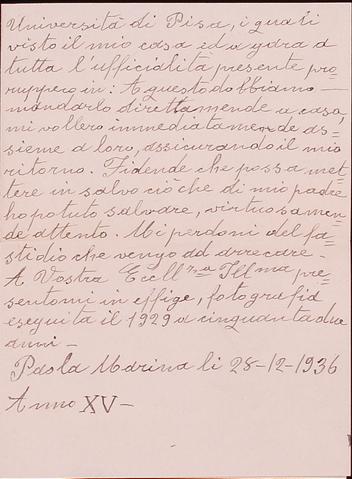 Università di Pisa, i quali
visto il mio casa ed a ydra a
tutta l'ufficialità presente pro=
ruppero in: A questo dobbiamo —
mandarlo direttamende a casa,
mi vollero immediatamende as=
sieme a loro, assicurando il mio
ritorno. Fidende che possa met=
tere in salvo ciò che di mio padre
ho potuto salvare, virtuosamen=
de attento. Mi perdoni del fa=
stidio che vengo ad arrecare —
A Vostra Eccll Illma pre=
sentomi in effige, fotografia
eseguita il 1929 a cinquanta due
anni —
Paola Marina li 28-12-1936
Anno XV —